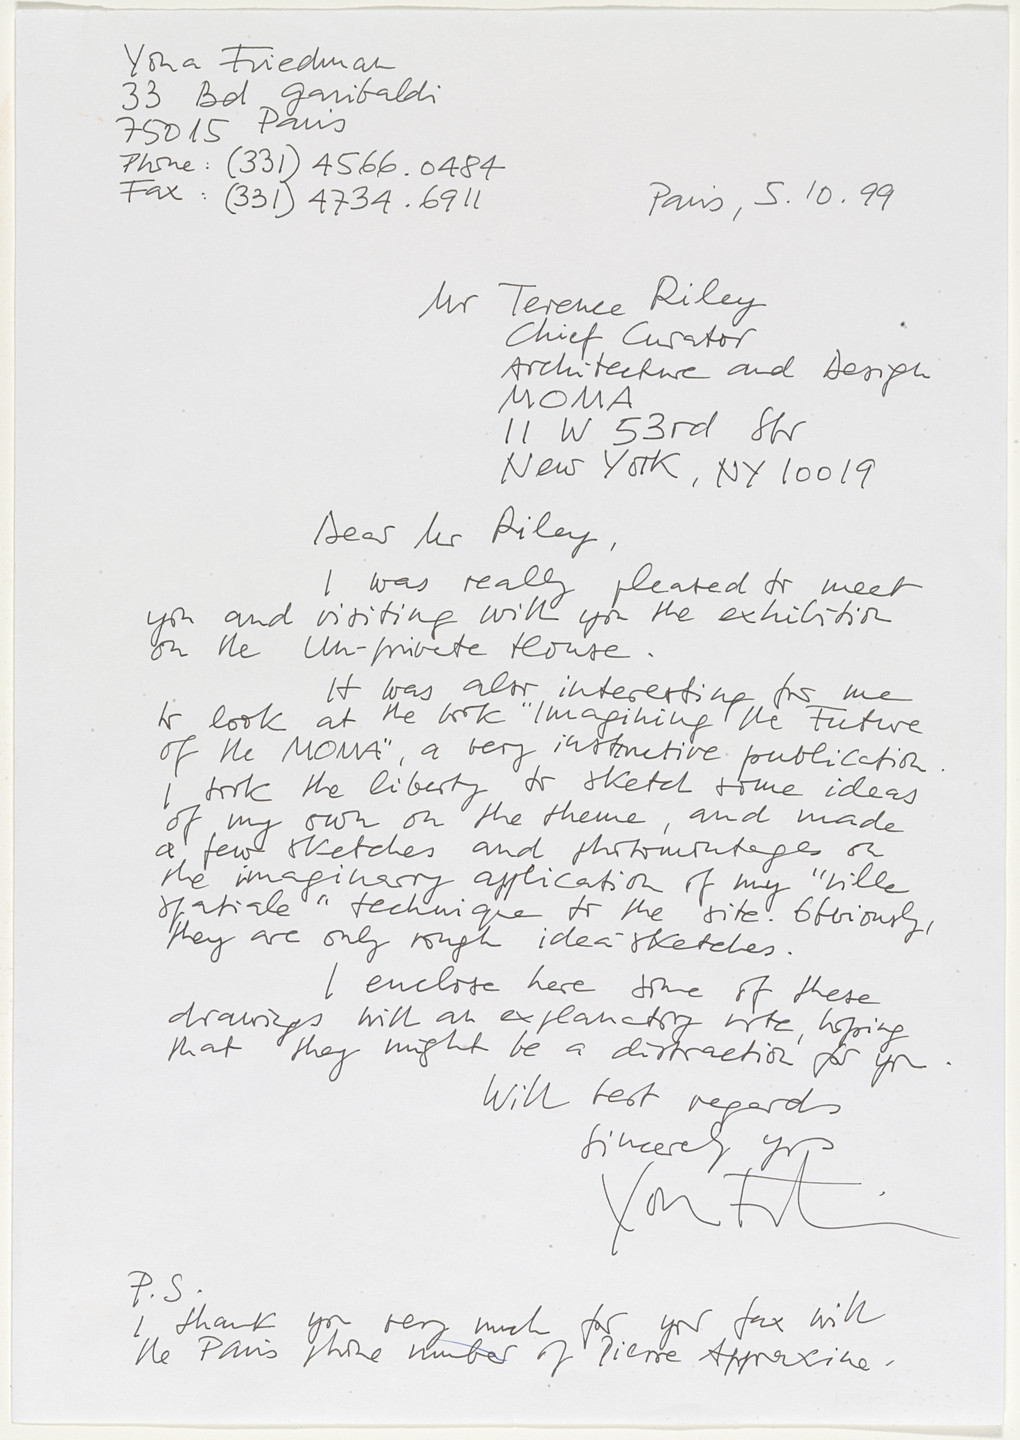 Yona Friedman
33 Bd Garibaldi
75015 Paris
Phone: (331) 4566.0484
Fax : (331) 4734.6911
Paris, 5.10.99
Mr Terence Riley
Chief Curator
Architecture and Design
MOMA
11 W 53rd Str
New York, NY 10019
Dear Mr Riley,
I was really pleased to meet
you and visiting with you the exhibition
on the Un-private House.
It was also interesting for me
to look at the book "Imagining the Future
of the MOMA", a very instructive publication.
I took the liberty to sketch some ideas
of my own on the theme, and made
a few sketches and photomontages on
the imaginary application of my "ville
spatiale" technique to the site. Obviously,
they are only rough idea-sketches.
I enclose here some of these
drawings with an explanatory note, hoping
that they might be a distraction for you.
With best regards
Sincerely yrs
Yona Friedman
P.S.
I thank you very much for your fax with
the Paris phone number of Pierre Apraxine.